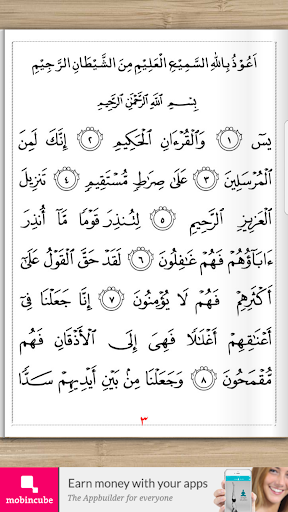 اَعُوْذُ بِاللهِ السَّمِيْعِ الْعَلِيْمِ مِنَ الشَّيْطَانِ الرَّجِيْمِ
بِسْمِ ٱللَّهِ ٱلرَّحْمَٰنِ ٱلرَّحِيمِ
يسٓ ١ وَٱلْقُرْءَانِ ٱلْحَكِيمِ ٢ إِنَّكَ لَمِنَ
ٱلْمُرْسَلِينَ ٣ عَلَىٰ صِرَٰطٍ مُّسْتَقِيمٍ ٤ تَنزِيلَ
ٱلْعَزِيزِ ٱلرَّحِيمِ ٥ لِتُنذِرَ قَوْمًا مَّآ أُنذِرَ
ءَابَآؤُهُمْ فَهُمْ غَٰفِلُونَ ٦ لَقَدْ حَقَّ ٱلْقَوْلُ عَلَىٰٓ
أَكْثَرِهِمْ فَهُمْ لَا يُؤْمِنُونَ ٧ إِنَّا جَعَلْنَا فِىٓ
أَعْنَٰقِهِمْ أَغْلَٰلًا فَهِىَ إِلَى ٱلْأَذْقَانِ فَهُم
مُّقْمَحُونَ ٨ وَجَعَلْنَا مِنۢ بَيْنِ أَيْدِيهِمْ سَدًّا
٣
mobincube
Earn money with your apps
The Appbuilder for everyone